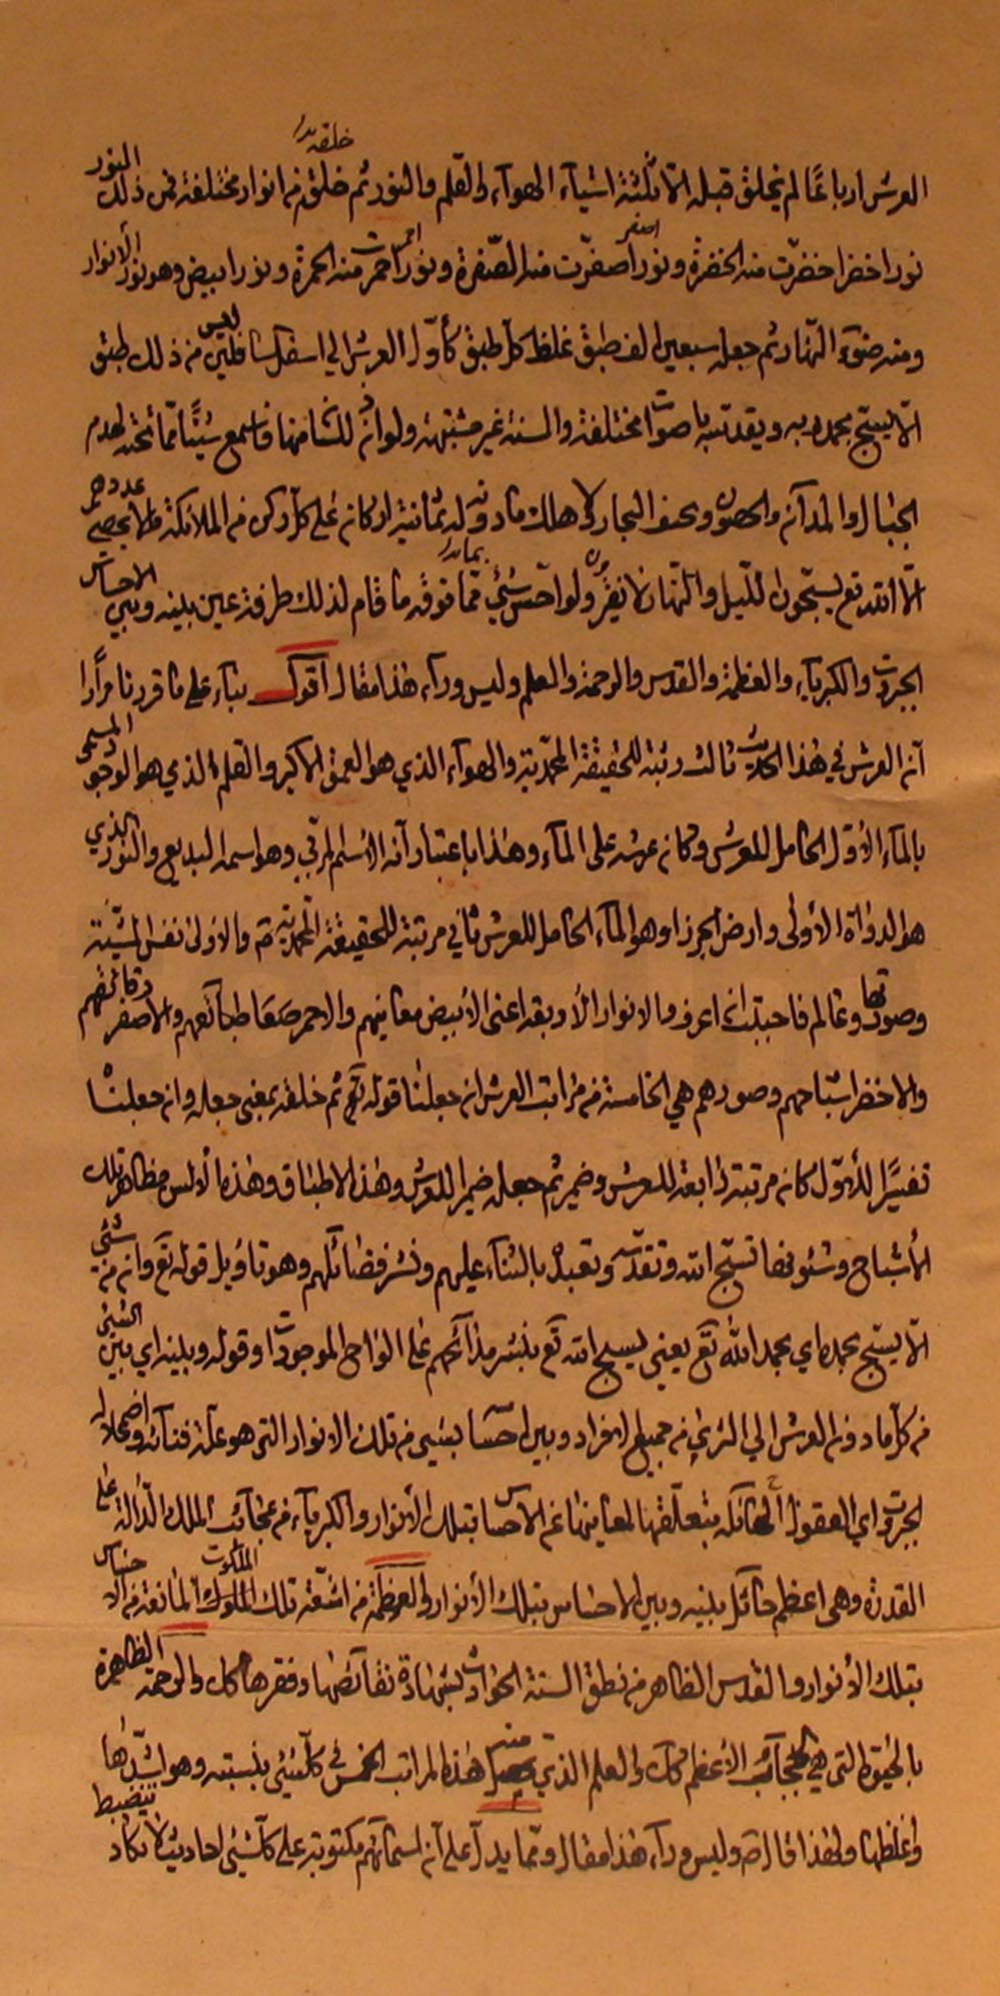 العرش ارباعًا لم يخلق قبله الا ثلثة اشياء الهوآء والقلم والنور ثم خلقه من انوار مختلفة فمن ذلك النور
نور اخضر اخضرّت منه الخضرة ونور اصفر اصفرّت منه الصّفرة ونور احمر احمرّت منه الحمرة ونور ابيض وهو نور الأنوار
ومنه ضوء النّهار ثم جعله سبعين الف طبق غلظ كل طبق كأوّل العرش الي اسفل السافلين ليس من ذلك طبق
الّا يسبّح بحمد ربه ويقدّسه باصوات مختلفة والسنة غير مشتبهة ولو اذن للسان منها فاسمع شيئًا مما تحته لهدم
الجبال والمدآئن والحصون ولخسف البحار ولاهلك ما دونه له ثمانية اركان علي كل ركن من الملائكة ما لا يحصي عددهم
الّا الله تع يسبّحون اللّيل والنّهار لا يفترون ولو احسّ شيئ مما فوقه ما قام لذلك طرفة عين بينه وبين الاحساس
الجبروت والكبرياء والعظمة والقدس والرحمة والعلم وليس ورآء هذا مقال اقول بناء علي ما قررنا مرارا
انّ العرش في هذا الحديث ثالث رتبة للحقيقة المحمّدية والهوآء الذي هو العمق الاكبر والقلم الذي هو الوجود المسمى
بالمآء الأوّل الحامل للعرش وكان عرشه على المآء وهذا باعتبار انه الاسم المربّي وهو اسمه البديع والنور الذي
هو الدواة الأولى وارض الجرز او هو المآء الحامل للعرش ثاني مرتبة للحقيقة المحمدية ص والاولى نفس المشيّة
وصورتها وعالم فاحببت ان اعرف والانوار الأربعة اعنى الأبيض معانيهم والاحمر طبائعهم والاصفر رقائقهم
والاخضر اشباحهم وصورهم هي الخامسة من مراتب العرش ان جعلنا قوله ثم خلقه بمعنى جعله وان جعلنا
تفسيرًا للاوّل كان مرتبة رابعة للعرش وضمير ثم جعله ضمير العرش وهذه الاطباق وهذه الالسن مظاهر تلك
الأشباح وشئونها تسبّح الله وتقدّسه وتعبده بالثنآء عليهم ونشر فضائلهم وهو تاويل قوله تع وان من شئي
الّا يسبّح بحمده اي بحمد الله تع يعني يسبح الله تع بنشر مدآئحهم علي الواح الموجودات وقوله وبينه اي بين الشئ
من كل ما دون العرش الي الثري من جميع الافراد وبين احساسه بشيئ من تلك الانوار التى هو علّة فنآئه واضمحلاله
الجبروت اي العقول الحائلة بتعلّقها لمعانيها عن الاحساس بتلك الأنوار والكبرياء من عجائب الملك الدّالة علي
القدرة وهي اعظم حائل بينه وبين الاحساس بتلك الأنوار والعظمة من اشعّة تلك الملكوت المانعة من الاحساس
بتلك الأنوار والقدس الظاهر من نطق السنة الحوادث بشهادة نقآئصها وفقرها كك والرحمة الظاهرة
بالحيوة التى هي الحجاب الأعظم كك والعلم الذي هذه المراتب الخمس في كلّ شيئ بنسبته وهو اشدّها
واغلظها ولهذا قال ص وليس ورآء هذا مقال وممّا يدل على انّ اسمائهم مكتوبة على كلّ شيئ احاديث لا تكاد تنضبط